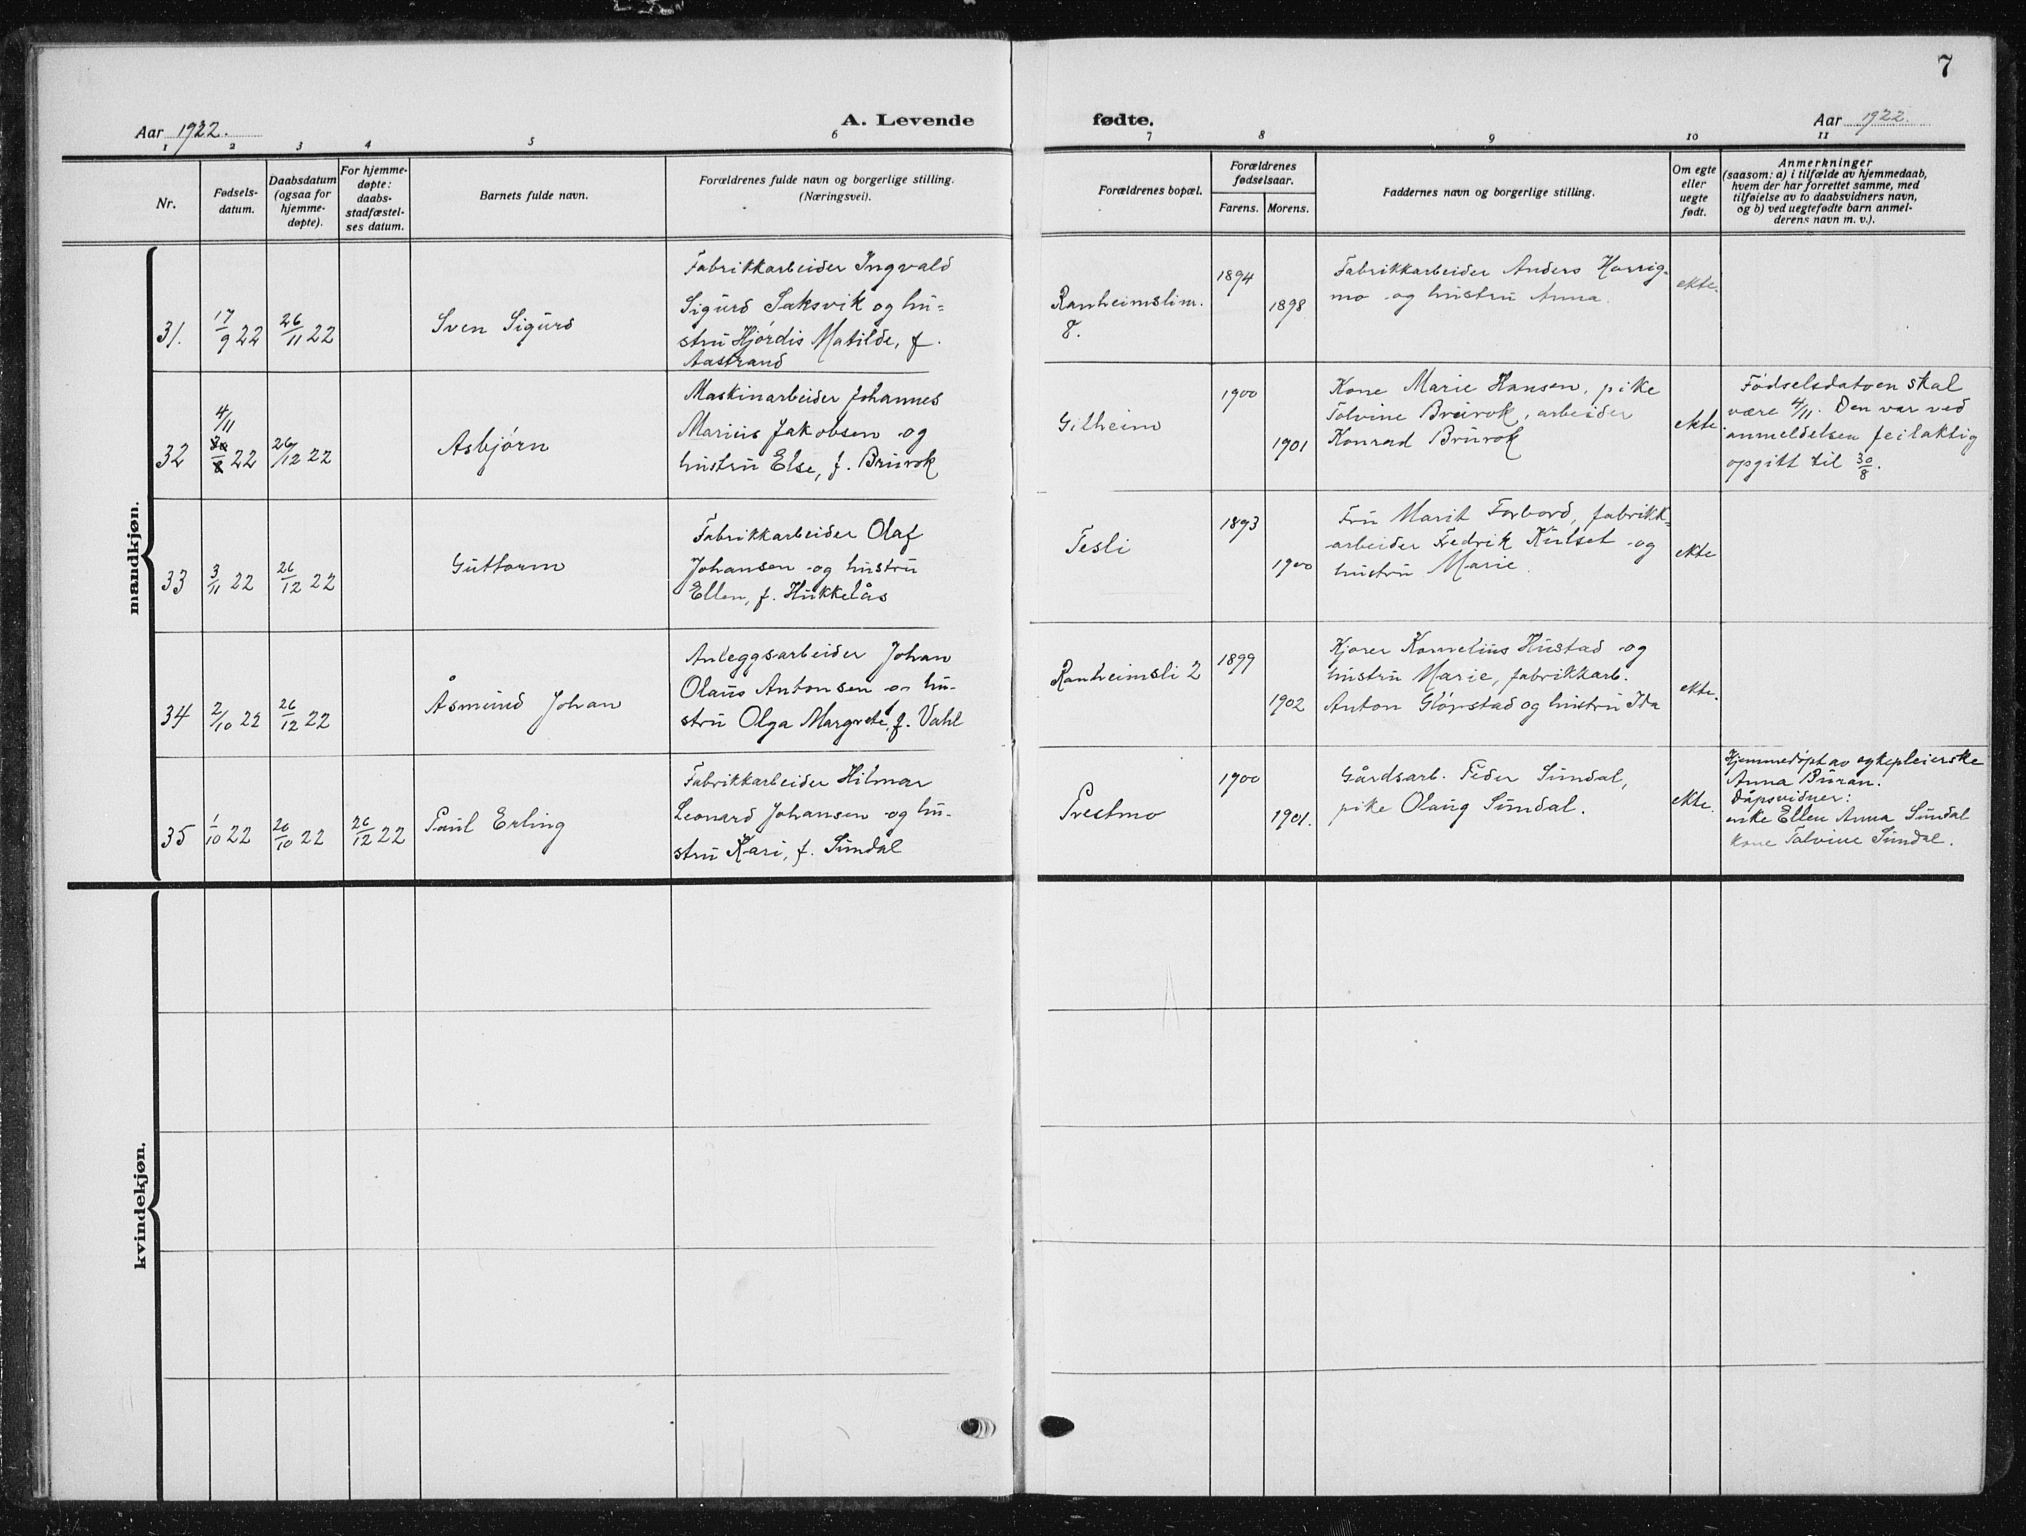 7
Aar 1922.
A. Levende
fødte.
Aar 1922.
1 2 3 4 5 6 7 8 9 10 11
Nr.
Fødsels-
datum.
Daabsdatum
(ogsaa for
hjemme-
døpte).
For hjemme-
døpte:
daabs-
stadfæstel-
ses datum.
Barnets fulde navn.
Forældrenes fulde navn og borgerlige stilling.
(Næringsvei).
Forældrenes bopæl.
Forældrenes
fødselsaar.
Farens. Morens.
Faddernes navn og borgerlige stilling.
Om egte
eller
uegte
født.
Anmerkninger
(saasom: a) i tilfælde av hjemmedaab,
hvem der har forrettet samme, med
tilføielse av to daabsvidners navn,
og b) ved uegtefødte barn anmel-
derens navn m. v.).
mandkjøn.
31.
17/9 22
26/11 22
Sven Sigurd
Fabrikkarbeider Ingvald
Sigurd Saksvik og hu-
stru Hjørdis Matilde, f.
Aastrand
Ranheimslim.
8.
1894
1898
Fabrikkarbeider Anders Horrig-
mo og hustru Anna.
ekte.
32
4/11
30/8 22
26/12 22
Asbjørn
Maskinarbeider Johannes
Marius Jakobsen og
hustru Else, f. Brurok
Gilheim
1900
1901
Kone Marie Hansen, pike
Tolvine Brurok, arbeider
Konrad Brurok
ekte.
Fødselsdatoen skal
være 4/11. Den var ved
anmeldelsen feilaktig
opgitt til 30/8.
33
3/11 22
26/12 22
Guttorm
Fabrikkarbeider Olaf
Johansen og hustru
Ellen, f. Hukkelås
Tesli
1893
1900
Fru Marit Forbord, fabrikk-
arbeider Fredrik Kulset og
hustru Marie.
ekte
34
2/10 22
26/12 22
Åsmund Johan
Anleggsarbeider Johan
Olaus Antonsen og hu-
stru Olga Margrete, f. Vahl
Ranheimsli 2
1899
1902
Kjører Kornelius Hustad og
hustru Marie, fabrikkarb.
Anton Glørstad og hustru Ida
ekte.
35
1/10 22
20/10 22
26/12 22
Paul Erling
Fabrikkarbeider Hilmar
Leonard Johansen og hu-
stru Kari, f. Sundal
Prestmo
1900
1901.
Gårdsarb. Peder Sundal,
pike Olaug Sundal.
ekte.
Hjemmedøpt av sykepleierske
Anna Buran.
Dåpsvidner:
enke Ellen Anna Sundal
kone Talvine Sundal.
kvindekjøn.